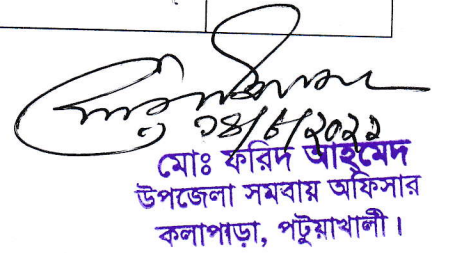 ১৪/৮/২০২২
মোঃ ফরিদ আহমেদ
উপজেলা সমবায় অফিসার
কলাপাড়া, পটুয়াখালী।